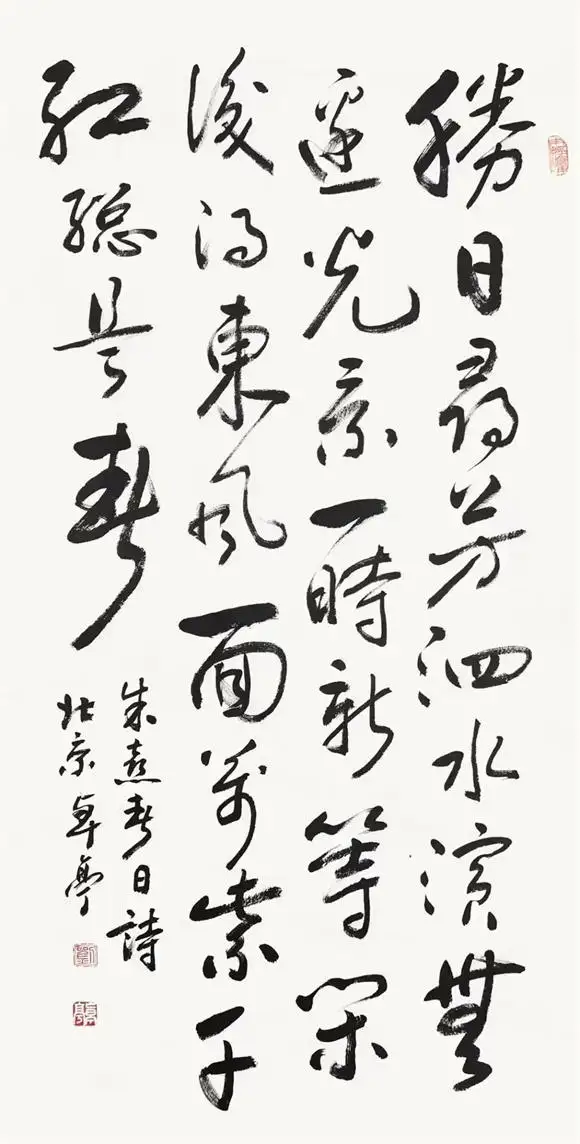 勝日尋芳泗水濱無
邊光景一時新等閑
識得東風面萬紫千
紅總是春
朱熹春日詩
北京卓亭